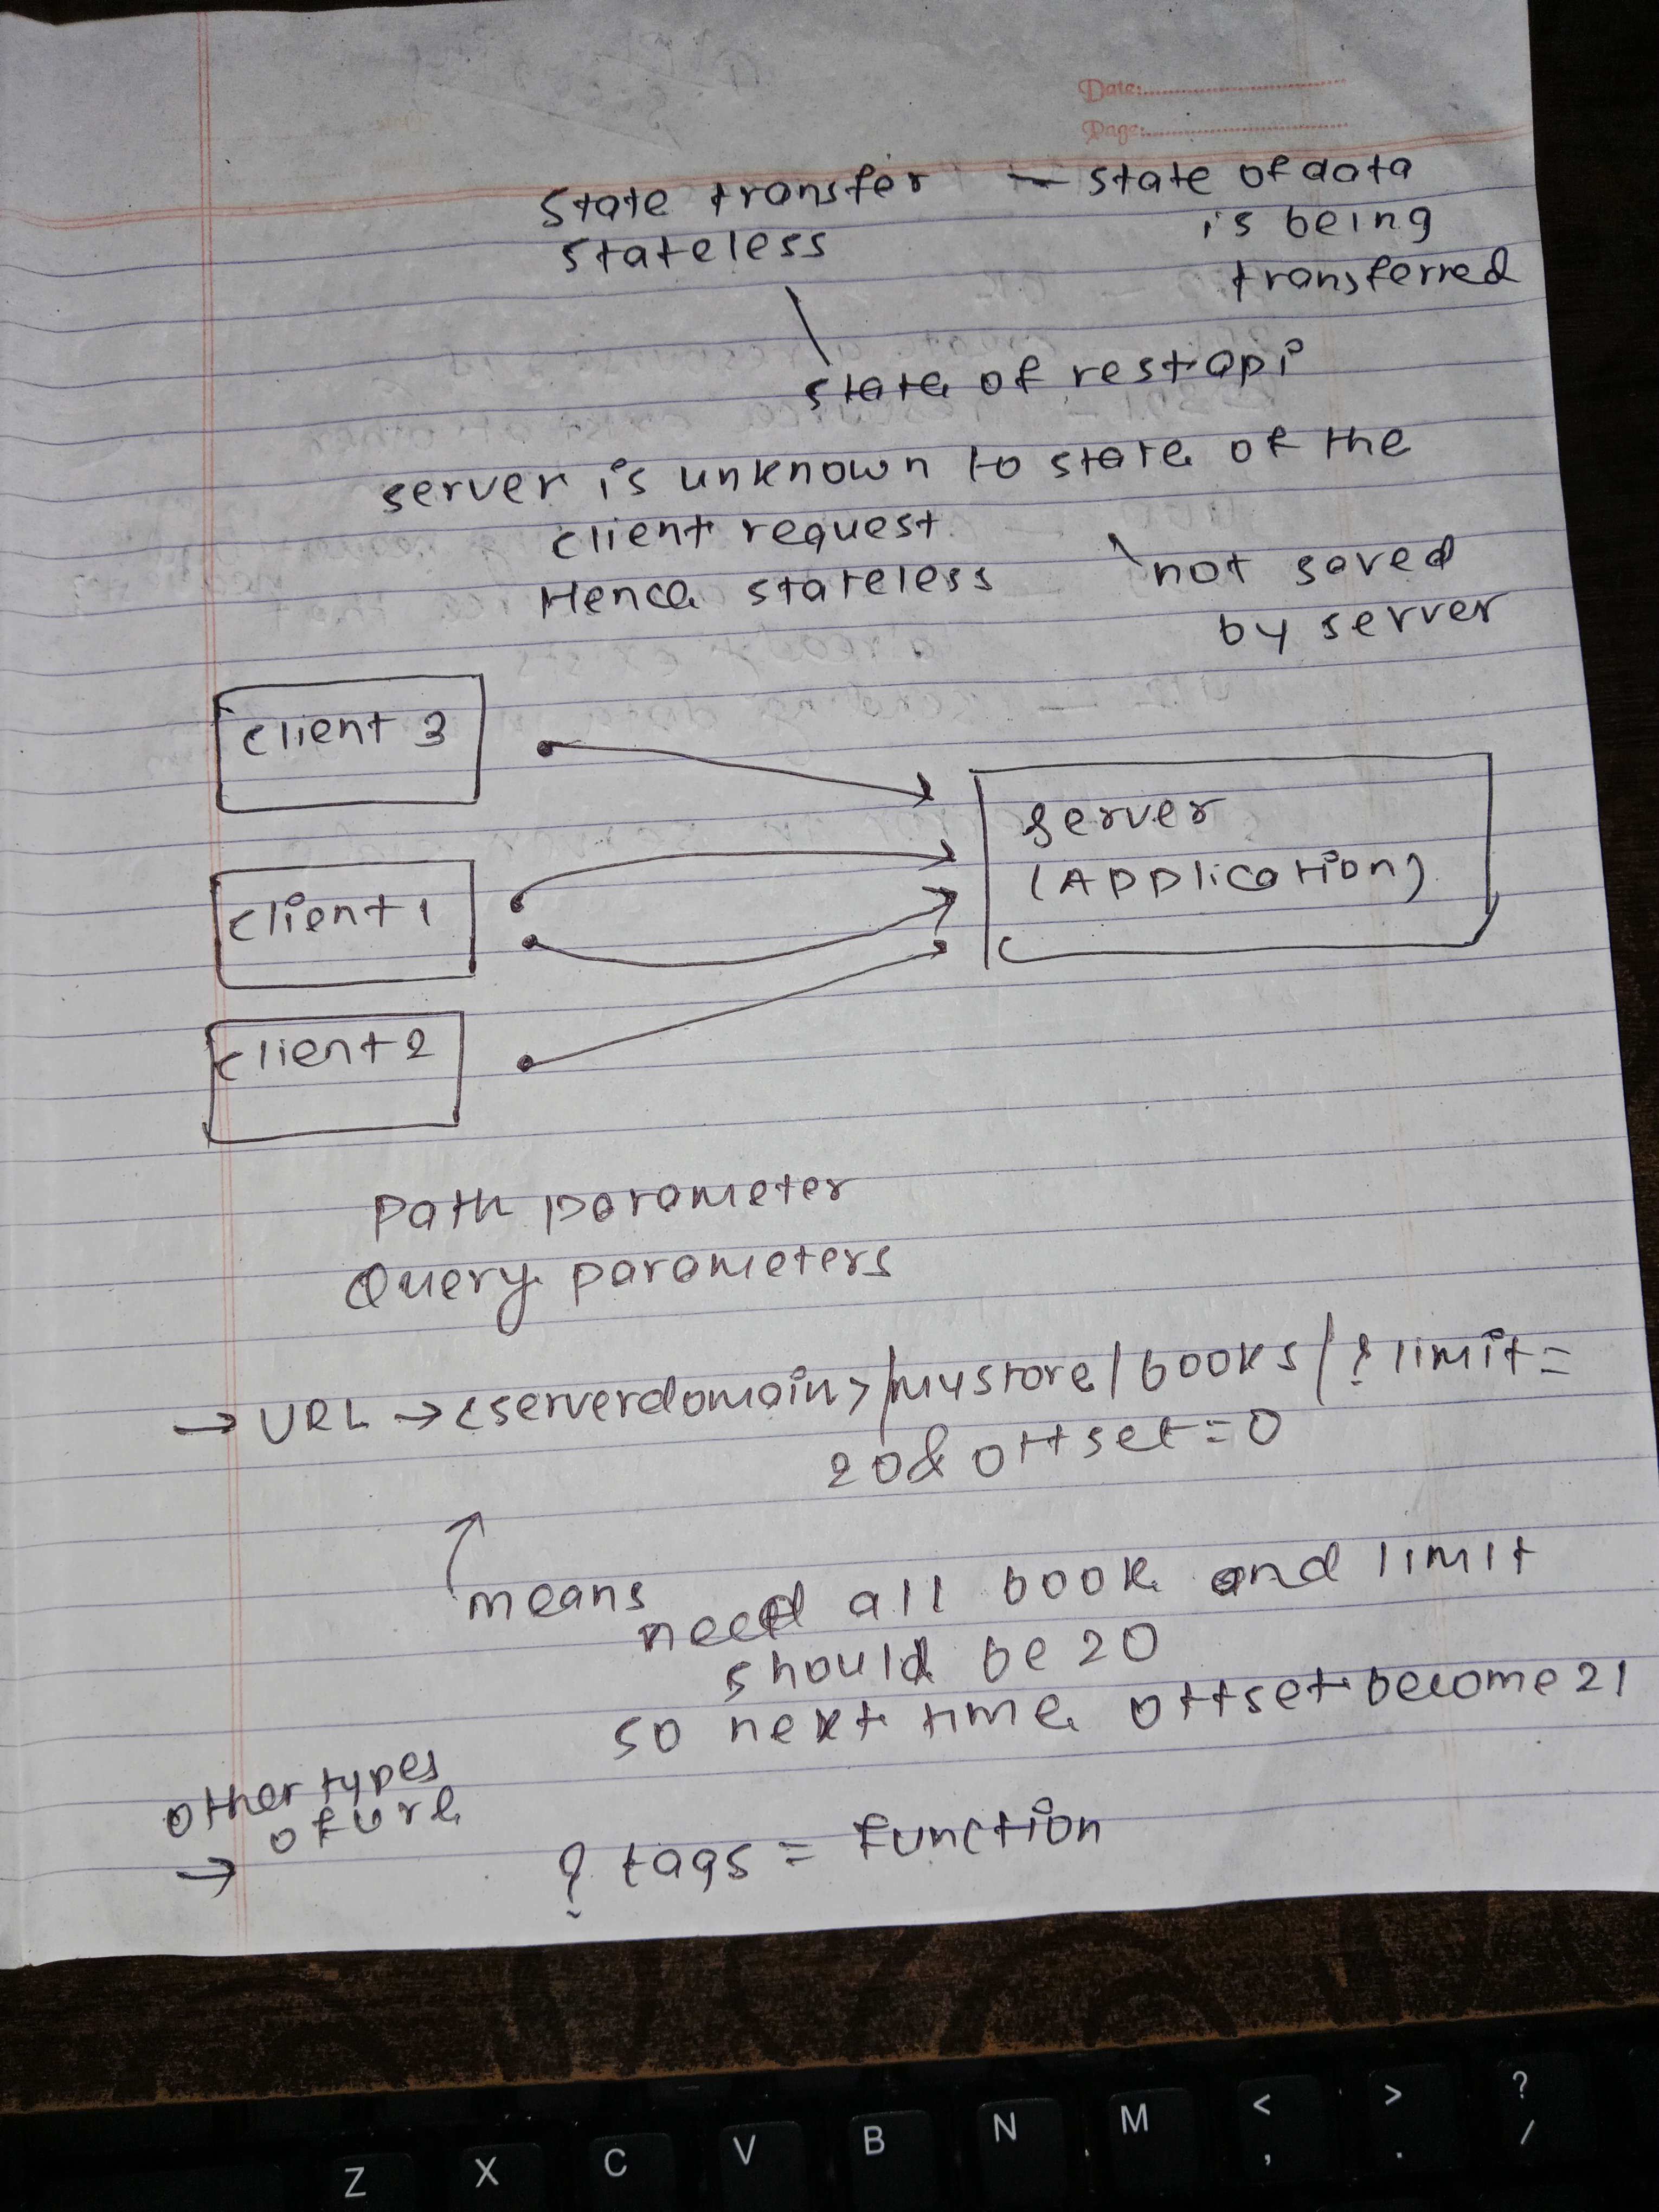 Date:
Page:
State transfer — state of data
stateless is being
transferred
state of rest api
server is unknown to state of the
client request
Hence stateless not saved
by server
client 3
server
(Application)
client 1
client 2
Path parameter
Query parameters
→ URL → <serverdomain>/mystore/books/?limit=
20& offset=0
means need all book and limit
should be 20
so next time offset become 21
other types
of url
→ ? tags = function
Z X C V B N M < , > . ? /